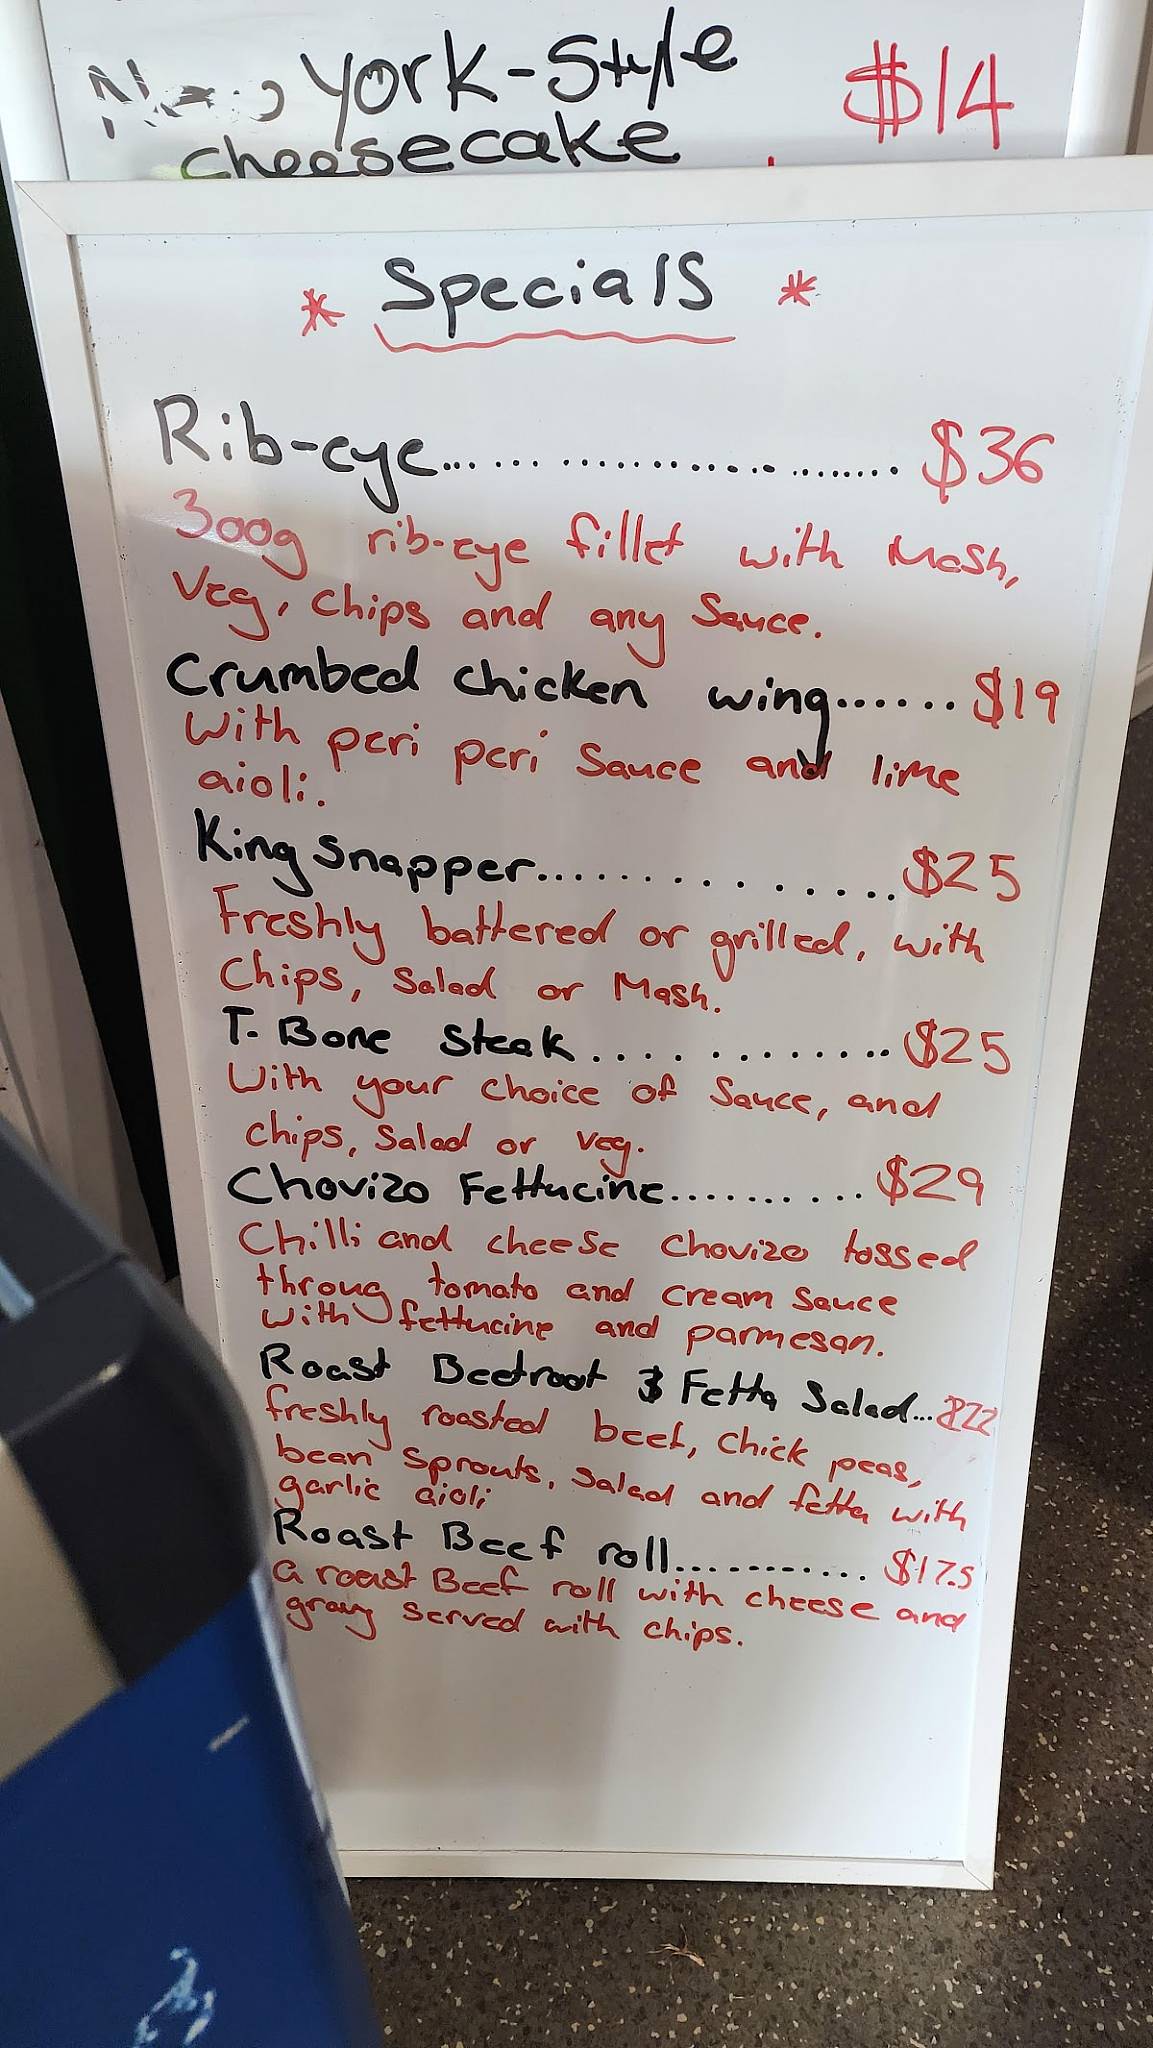 New York-Style $14
cheesecake
* Specials *
Rib-eye....................... $36
300g rib-eye fillet with Mash,
Veg, Chips and any Sauce.
Crumbed chicken wing...... $19
With peri peri Sauce and lime
aioli.
King Snapper............... $25
Freshly battered or grilled, with
Chips, Salad or Mash.
T-Bone Steak............. $25
With your choice of Sauce, and
chips, Salad or veg.
Chovizo Fettucine.......... $29
Chilli and cheese chovizo tossed
throug tomato and cream sauce
with fettucine and parmesan.
Roast Beetroot & Fetta Salad... $22
freshly roasted beet, chick peas,
bean sprouts, salad and fetta with
garlic aioli
Roast Beef roll........... $17.5
a roast Beef roll with cheese and
gravy served with chips.